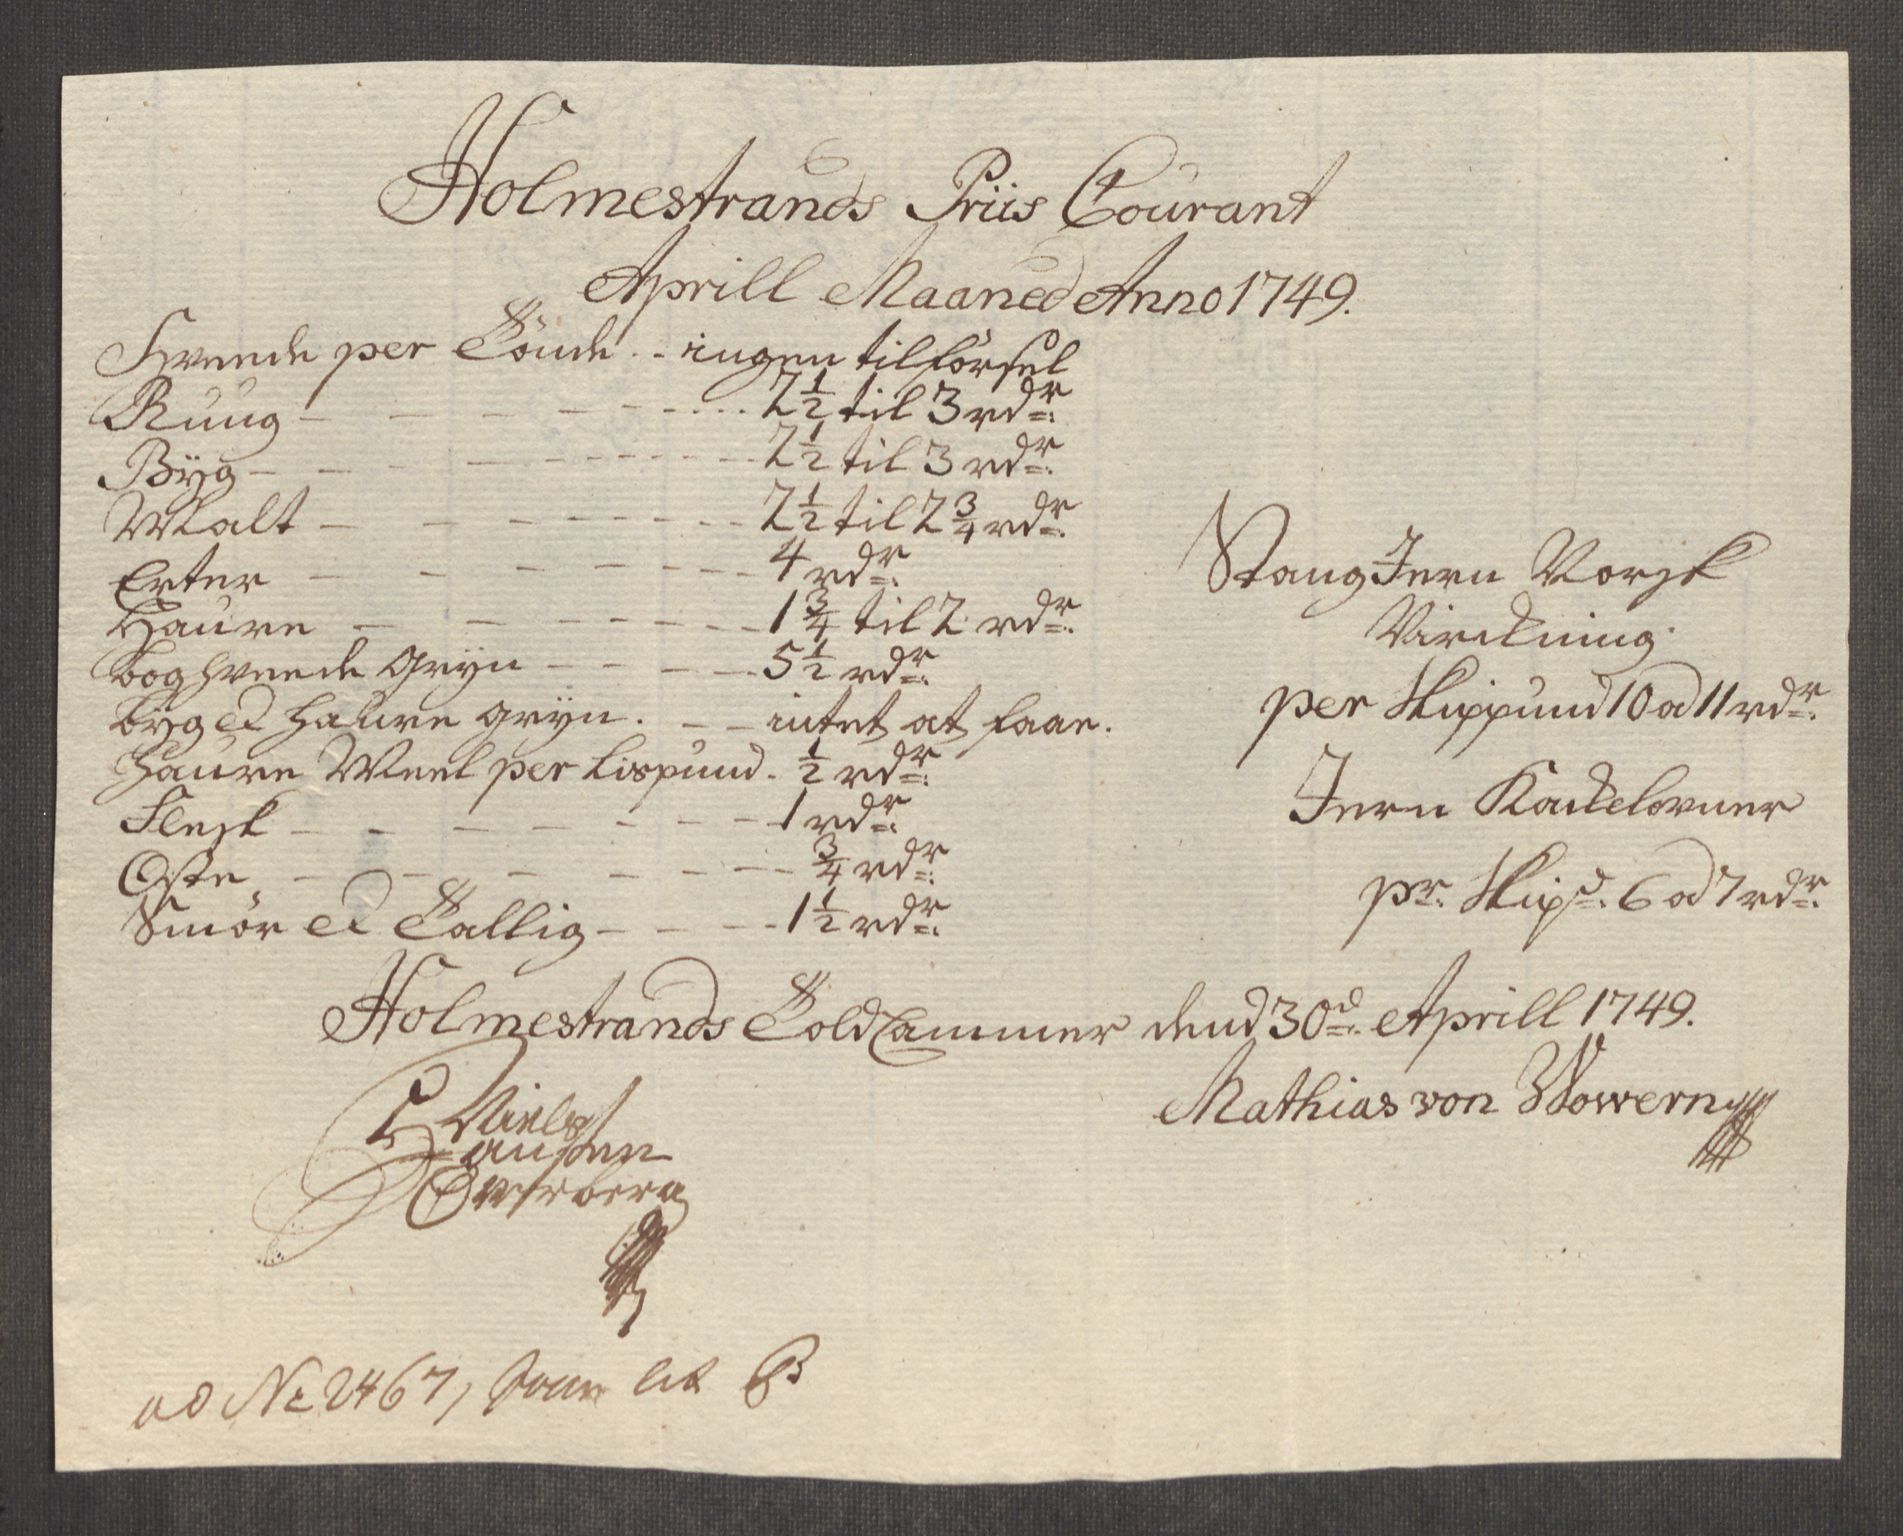 Holmestrands Priis Courant
Aprill Maaned Anno 1749.
Hveede per Tönde .. ingen tilförsel
Ruug - - - - - - ... 2½ til 3 rdr:
Byg - - - - - - - - - 2½ til 3 rdr:
Malt - - - - - - - - 2½ til 2¾ rdr:
Erter - - - - - - - 4 rdr:
Haure - - - - - - - 1¾ til 2 rdr:
boghveede Gryn - - - - - 5½ rdr:
byg et haure gryn. - - intet at faae.
haure Meel per Lispund - ½ rdr:
Flesk - - - - - - - 1 rdr:
Oste - - - - - - - ¾ rdr:
Smör et Tallig - - - - 1½ rdr:
Stang Jern Norsk
Virckning
per Skippund 10 a 11 rdr:
Jern Kackelovner
pr. Skipd. 6 a 7 rdr:
Holmestrands Told Cammer dend 30d. Aprill 1749.
Niels
Hansen
Overberg
Mathias von Wowern
ad No 2467, Lit B